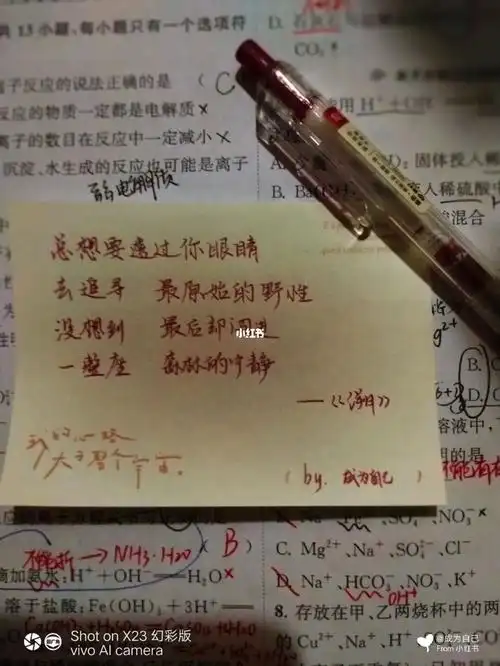 共 13 小题、每小题只有一个选项符
D. 石
CO₃
子反应的说法正确的是 (C
反应的物质一定都是电解质×
用 H⁺+OH⁻
离子的数目在反应中一定减小×
沉淀、水生成的反应也可能是离子
固体投入稀
B. Ba(OH)
入稀硫酸
弱电解质
混合
总想要透过你眼睛
去追寻 最原始的野性
没想到 最后却闯进
一整座 森林的宁静
——《溯》
我的心跳
大于整个宇宙。
(by. 成为自己)
小红书
B.
D.
溶液中,
不能拆→NH₃·H₂O
(B)
NO₃⁻×
C. Mg²⁺、Na⁺、SO₄²⁻、Cl⁻
滴加氨水:H⁺+OH⁻═H₂O×
D. Na⁺、HCO₃⁻、NO₃⁻、K⁺
OH⁻
溶于盐酸:Fe(OH)₃+3H⁺═
8. 存放在甲、乙两烧杯中的两
的 Cu²⁺、Na⁺、H⁺
Shot on X23 幻彩版
vivo AI camera
@成为自己
From 小红书